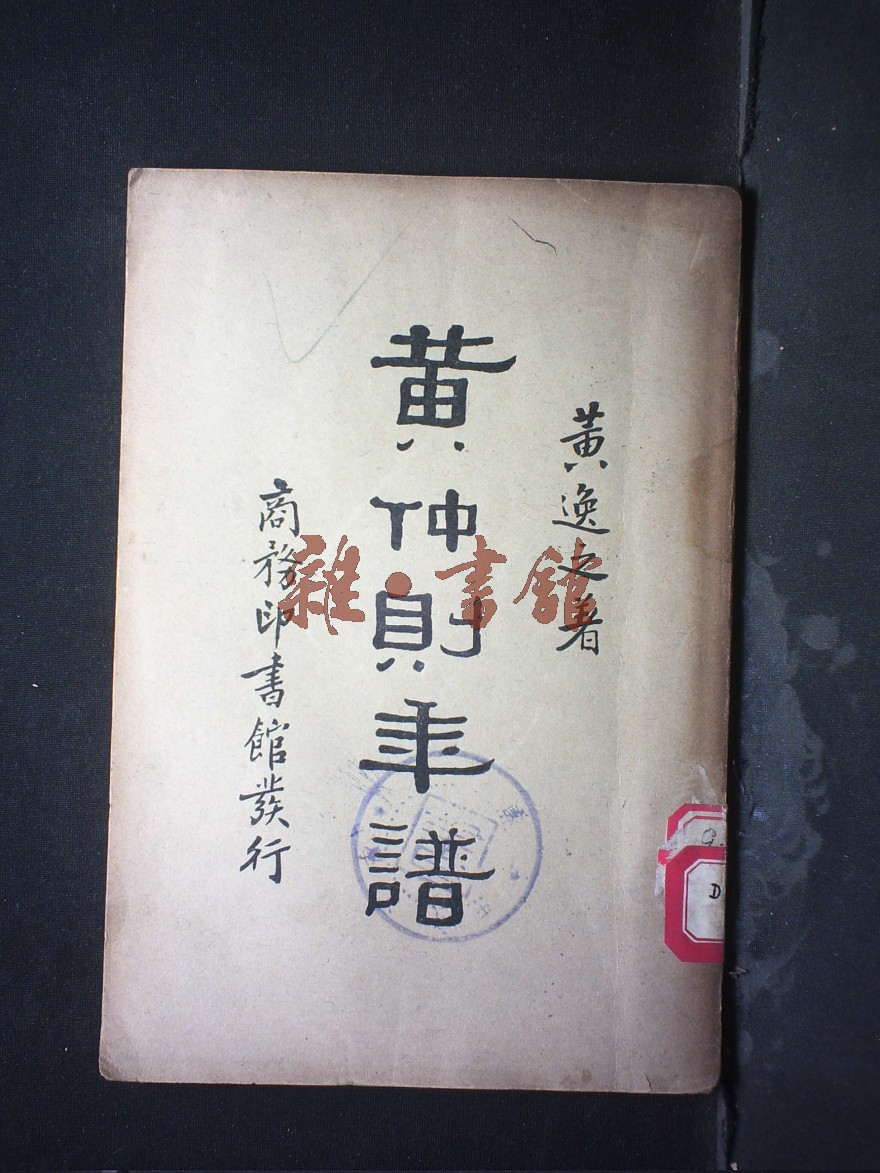 黃逸之著
黃仲則年譜
商務印書館發行
雜·書館
D